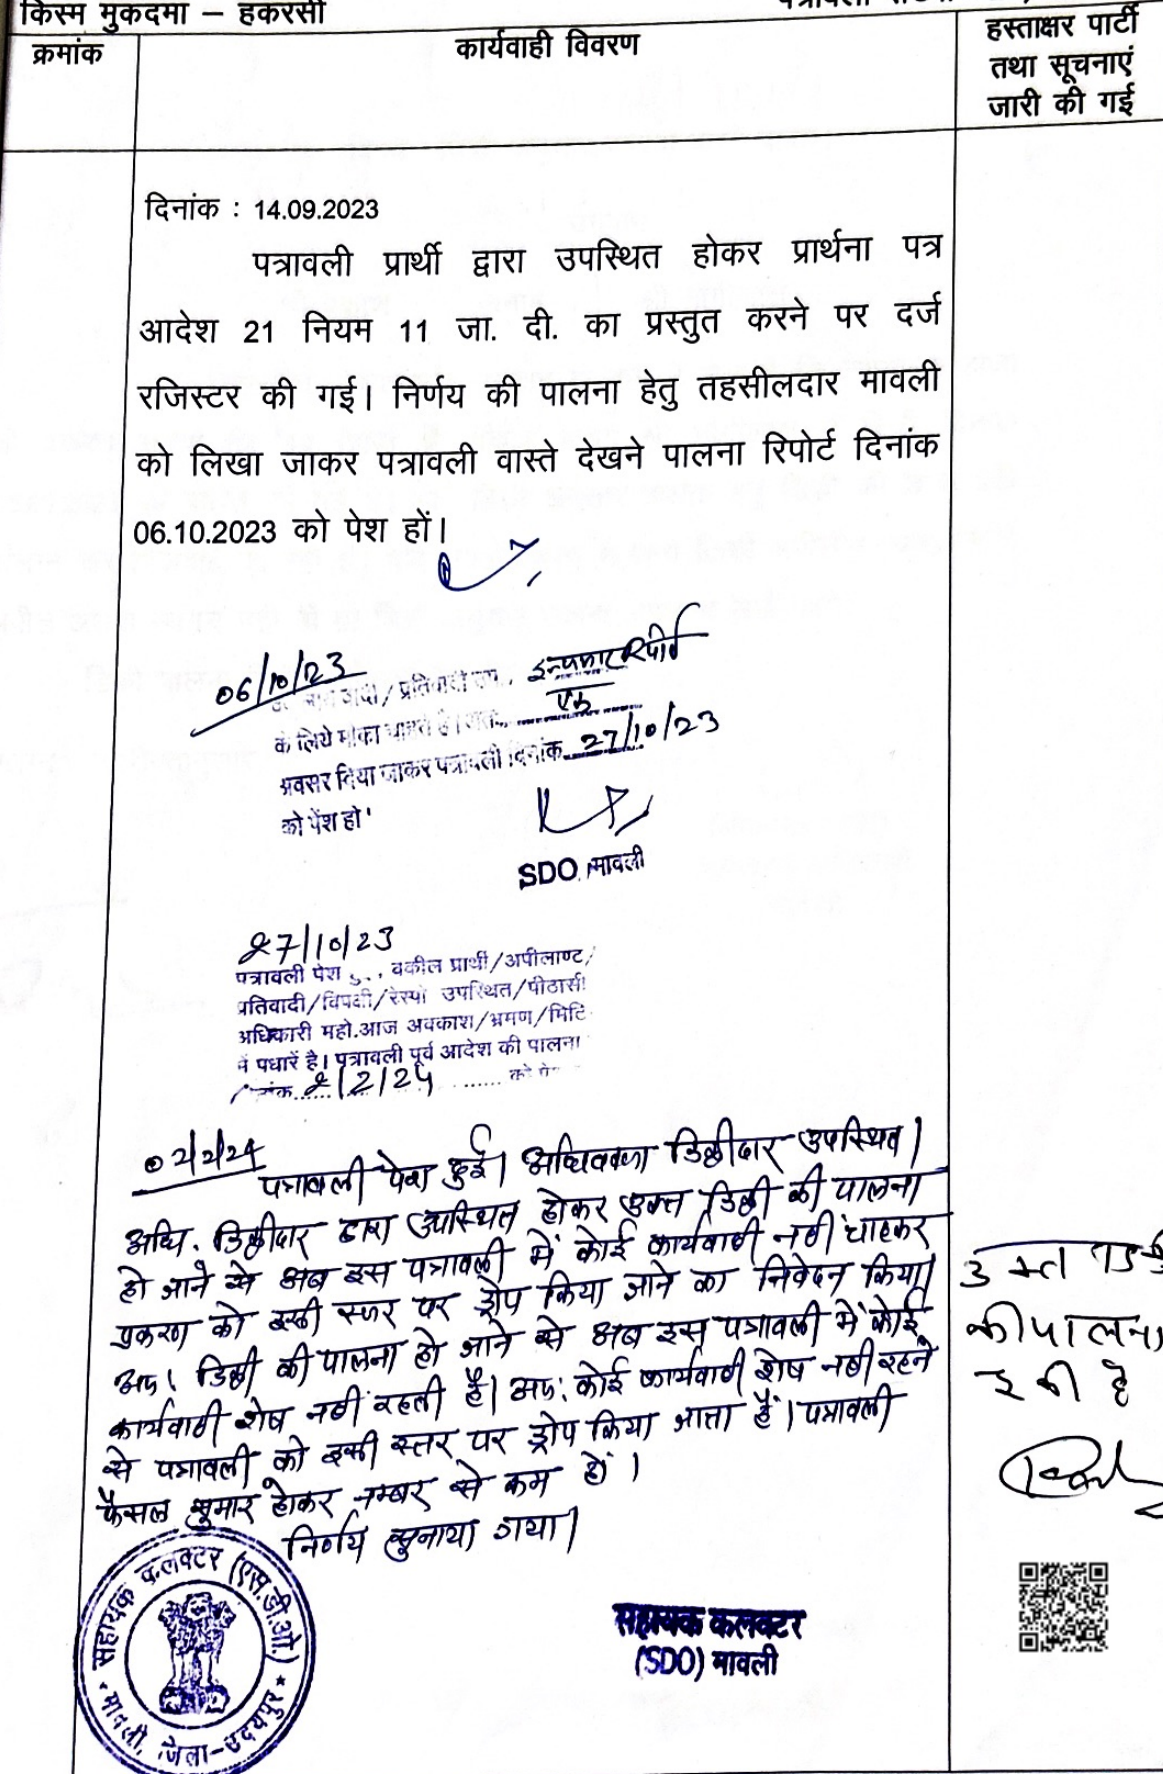 किस्म मुकदमा – हकरसी
क्रमांक
कार्यवाही विवरण
हस्ताक्षर पार्टी
तथा सूचनाएं
जारी की गई
दिनांक : 14.09.2023
पत्रावली प्रार्थी द्वारा उपस्थित होकर प्रार्थना पत्र
आदेश 21 नियम 11 जा. दी. का प्रस्तुत करने पर दर्ज
रजिस्टर की गई। निर्णय की पालना हेतु तहसीलदार मावली
को लिखा जाकर पत्रावली वास्ते देखने पालना रिपोर्ट दिनांक
06.10.2023 को पेश हों।
06/10/23
वादी / प्रतिवादी
के लिये मौका चाहते है। अतः एक
अवसर दिया जाकर पत्रावली दिनांक 27/10/23
को पेंश हो
SDO मावली
27/10/23
पत्रावली पेश वकील प्रार्थी/अपीलाण्ट/
प्रतिवादी/विपक्षी/रेस्पो उपस्थित/पीठासी
अधिकारी महो.आज अवकाश/भ्रमण/मिटिं
में पधारें है। पत्रावली पूर्व आदेश की पालना
2/2/24 को पे
02/2/24
पत्रावली पेश हुई। अधिवक्ता डिक्रीदार उपस्थित।
अधि. डिक्रीदार द्वारा उपस्थित होकर उक्त डिक्री की पालना
हो जाने से अब इस पत्रावली में कोई कार्यवाही नहीं चाहकर
प्रकरण को इसी स्तर पर ड्रोप किया जाने का निवेदन किया।
अतः डिक्री की पालना हो जाने से अब इस पत्रावली में कोई
कार्यवाही शेष नहीं रहती है। अतः कोई कार्यवाही शेष नहीं रहने
से पत्रावली को इसी स्तर पर ड्रोप किया जाता है। पत्रावली
फैसल शुमार होकर नम्बर से कम हो।
निर्णय सुनाया गया।
की पालना
सहायक कलक्टर (एस.डी.ओ.)
मावली, जिला-उदयपुर
सहायक कलक्टर
(SDO) मावली